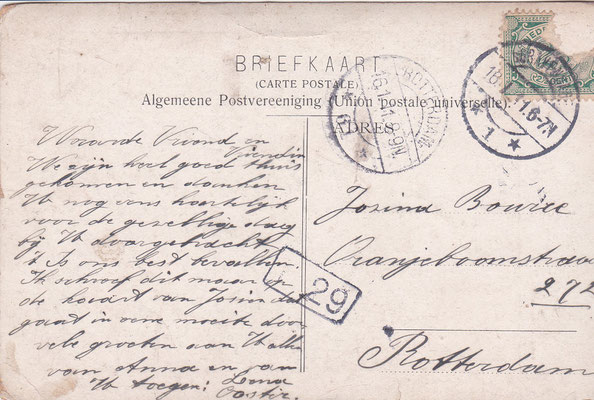 BRIEFKAART
(CARTE POSTALE)
Algemeene Postvereeniging (Union postale universelle).
ADRES
ROTTERDAM
6-7N
1
29
Waarde Vriend en
Vriendin
We zijn heel goed thuis
gekomen en danken
U nog eens hartelijk
voor de gezellige dag
bij U doorgebracht
t Is ons best bevallen.
Ik schreef dit maar op
de kaart van Josina dat
gaat in eene moeite door
vele groeten aan U allen
van Anna en van
U toegen: Lena
Josina
Oranjeboomstraat
272
Rotterdam